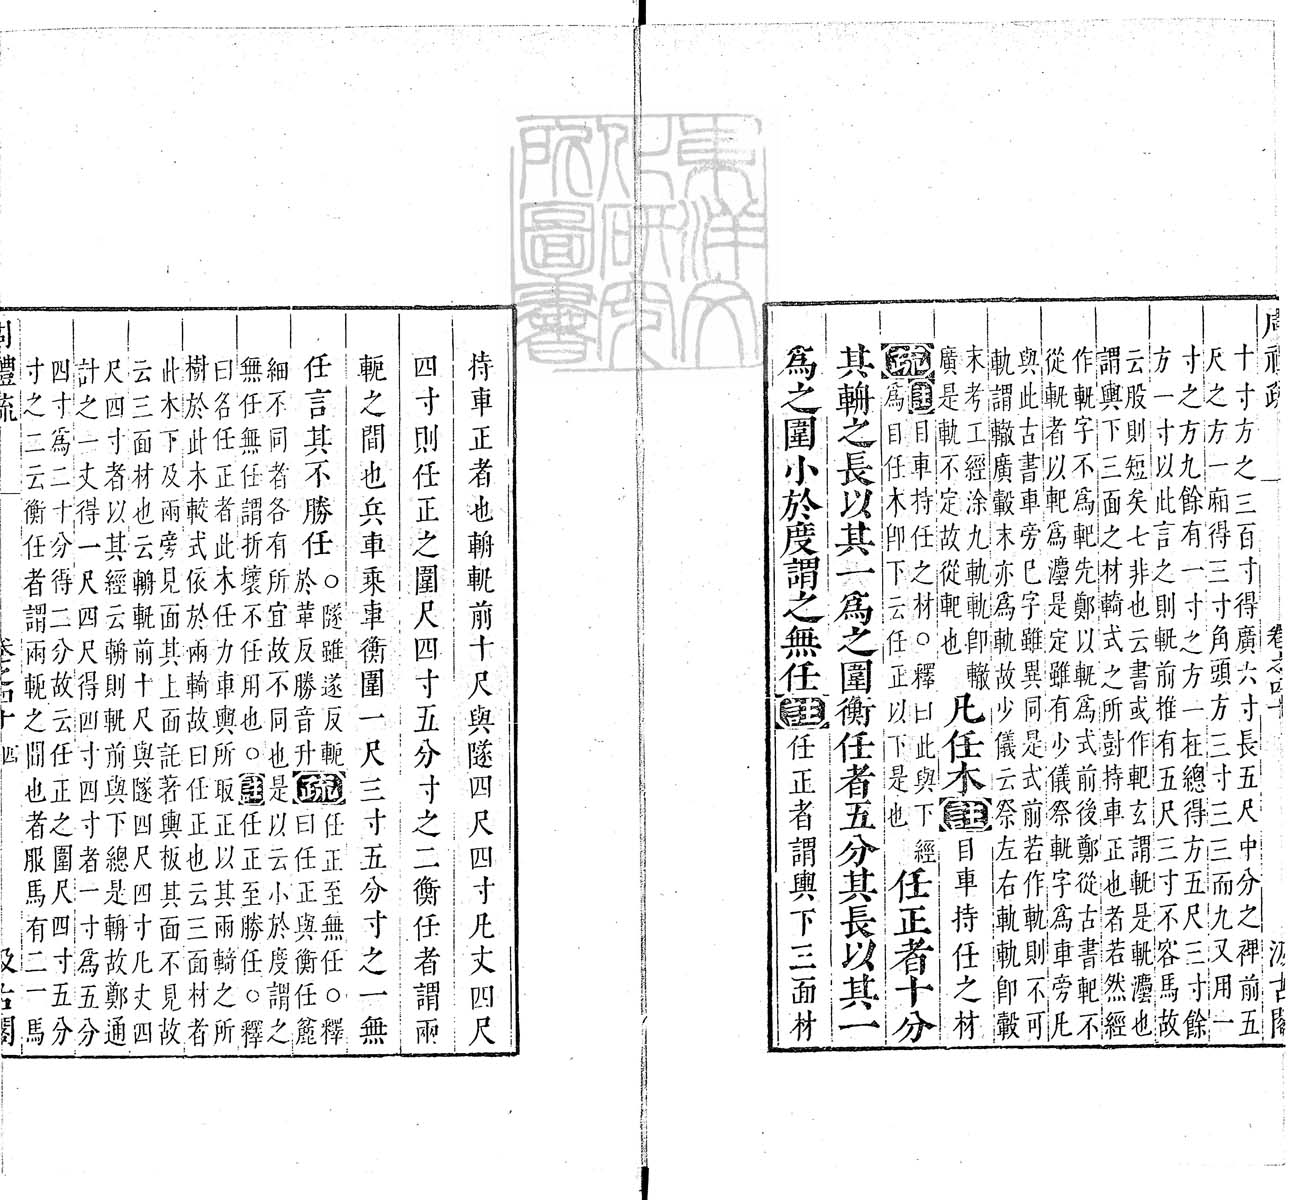 周禮疏
卷之四十
汲古閣
十寸方之三百寸得廣六寸長五尺中分之裨前五
尺之方一廂得三寸角頭方三寸三三而九又用一
寸之方九餘有一寸之方一在總得方五尺三寸餘
方一寸以此言之則軓前推有五尺三寸不容馬故
云股則短矣七非也云書或作軓玄謂軓是軓灋也
謂輿下三面之材輢式之所尌持車正也者若然經
作軓字不爲軓先鄭以軓爲式前後鄭從古書軓不
從軓者以軓爲灋是定雖有少儀祭軓字爲車旁凡
與此古書車旁巳字雖異同是式前若作軌則不可
軌謂轍廣轂末亦爲軌故少儀云祭左右軌軌卽轂
末考工經涂九軌軌卽轍
廣是軌不定故從軓也
凡任木
註
目車持任之材
疏
註目車持任之材○釋曰此與下經
爲目任木卽下云任正以下是也
任正者十分
其輈之長以其一爲之圍衡任者五分其長以其一
爲之圍小於度謂之無任
註
任正者謂輿下三面材
持車正者也輈軓前十尺與隧四尺四寸凡丈四尺
四寸則任正之圍尺四寸五分寸之二衡任者謂兩
軛之間也兵車乘車衡圍一尺三寸五分寸之一無
任言其不勝任
○隧雖遂反軛
於革反勝音升
疏
任正至無任○釋
曰任正與衡任麄
細不同者各有所宜故不同也是以云小於度謂之
無任無任謂折壞不任用也○註任正至勝任○釋
曰名任正者此木任力車輿所取正以其兩輢之所
樹於此木較式依於兩輢故曰任正也云三面材者
此木下及兩旁見面其上面託著輿板其面不見故
云三面材也云輈軓前十尺與隧四尺四寸凡丈四
尺四寸者以其經云輈則軓前與下總是輈故鄭通
計之一丈得一尺四尺得四寸四寸者一寸爲五分
四寸爲二十分得二分故云任正之圍尺四寸五分
寸之二云衡任者謂兩軛之間也者服馬有二一馬
周禮疏
卷之四十
四
汲古閣
東洋文化研究所圖書